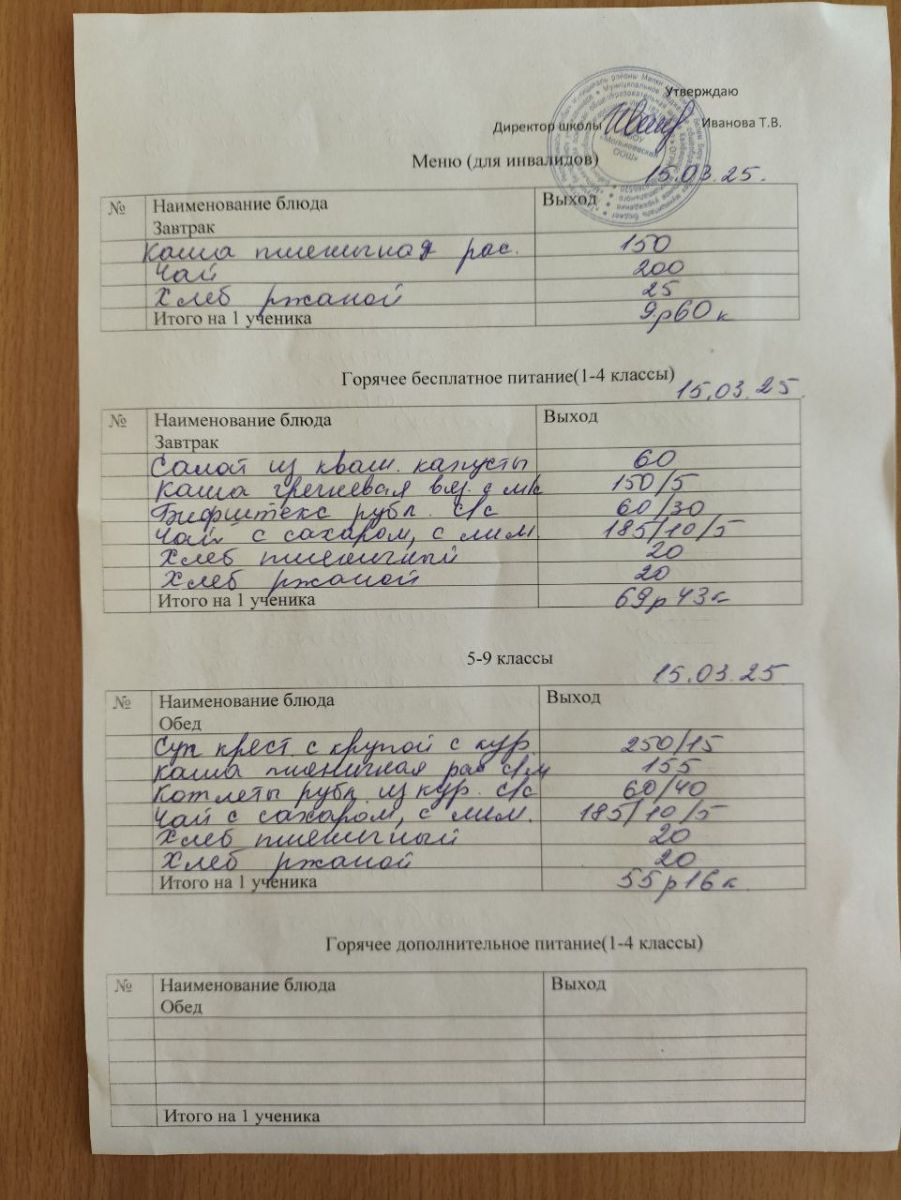 Утверждаю
Директор школы Иванова Т.В.
«Мольковская
ООШ»
Меню (для инвалидов)
15.03.25.
№ Наименование блюда Выход
Завтрак
Каша пшеничная рас. 150
Чай 200
Хлеб ржаной 25
Итого на 1 ученика 9р60к
Горячее бесплатное питание(1-4 классы)
15.03.25.
№ Наименование блюда Выход
Завтрак
Салат из кваш. капусты 60
Каша гречневая вяз. с м/с 150/5
Бифштекс рубл. с/с 60/30
Чай с сахаром, с лим. 185/10/5
Хлеб пшеничный 20
Хлеб ржаной 20
Итого на 1 ученика 69р43к
5-9 классы
15.03.25
№ Наименование блюда Выход
Обед
Суп крест с крупой с кур. 250/15
Каша пшеничная рас с/м 155
Котлеты рубл. из кур. с/с 60/40
Чай с сахаром, с лим. 185/10/5
Хлеб пшеничный 20
Хлеб ржаной 20
Итого на 1 ученика 55р16к.
Горячее дополнительное питание(1-4 классы)
№ Наименование блюда Выход
Обед
Итого на 1 ученика